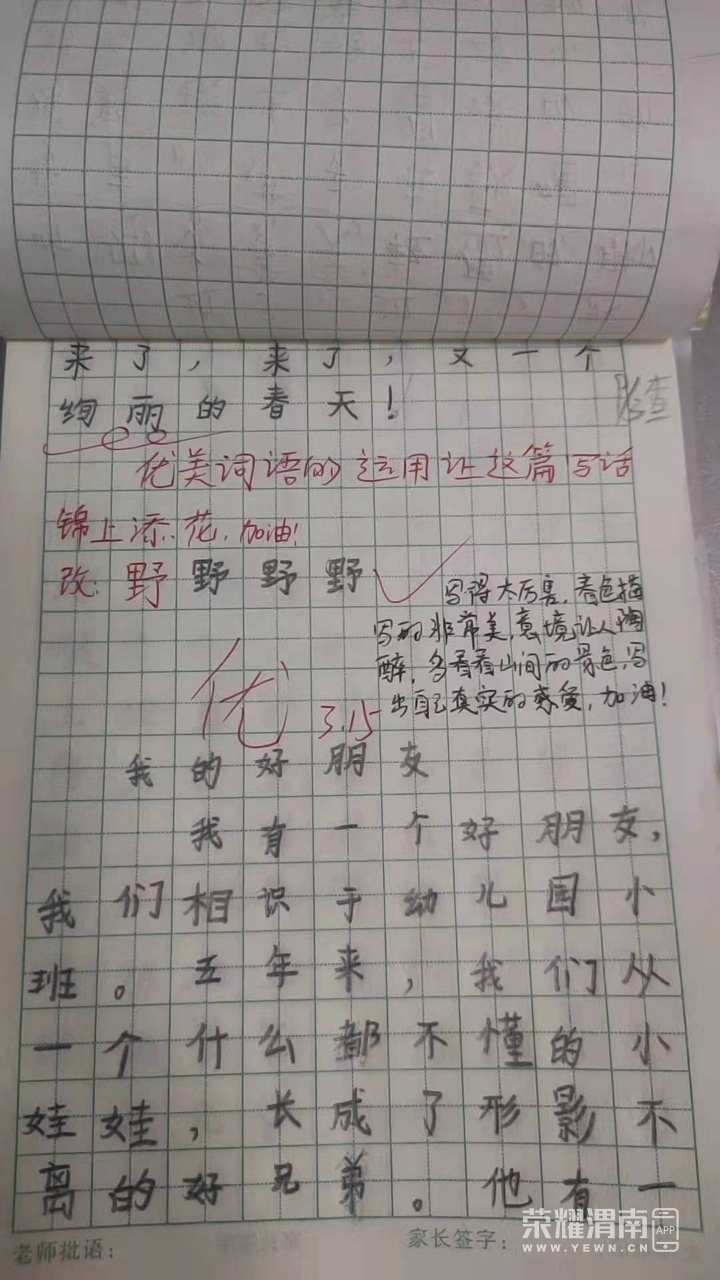 来了，来了，又一个
绚丽的春天！
查
优美词语的运用让这篇写话
锦上添花，加油！
改：野野野野
写得太厉害，春色描
写的非常美，意境让人陶
醉，多看看山间的景色，写
出自己真实的感爱，加油！
优 3.15
我的好朋友
我有一个好朋友，
我们相识于幼儿园小
班。五年来，我们从
一个什么都不懂的小
娃娃，长成了形影不
离的好兄弟。他有一
老师批语：
家长签字：
荣耀渭南 APP
WWW.YEWN.CN